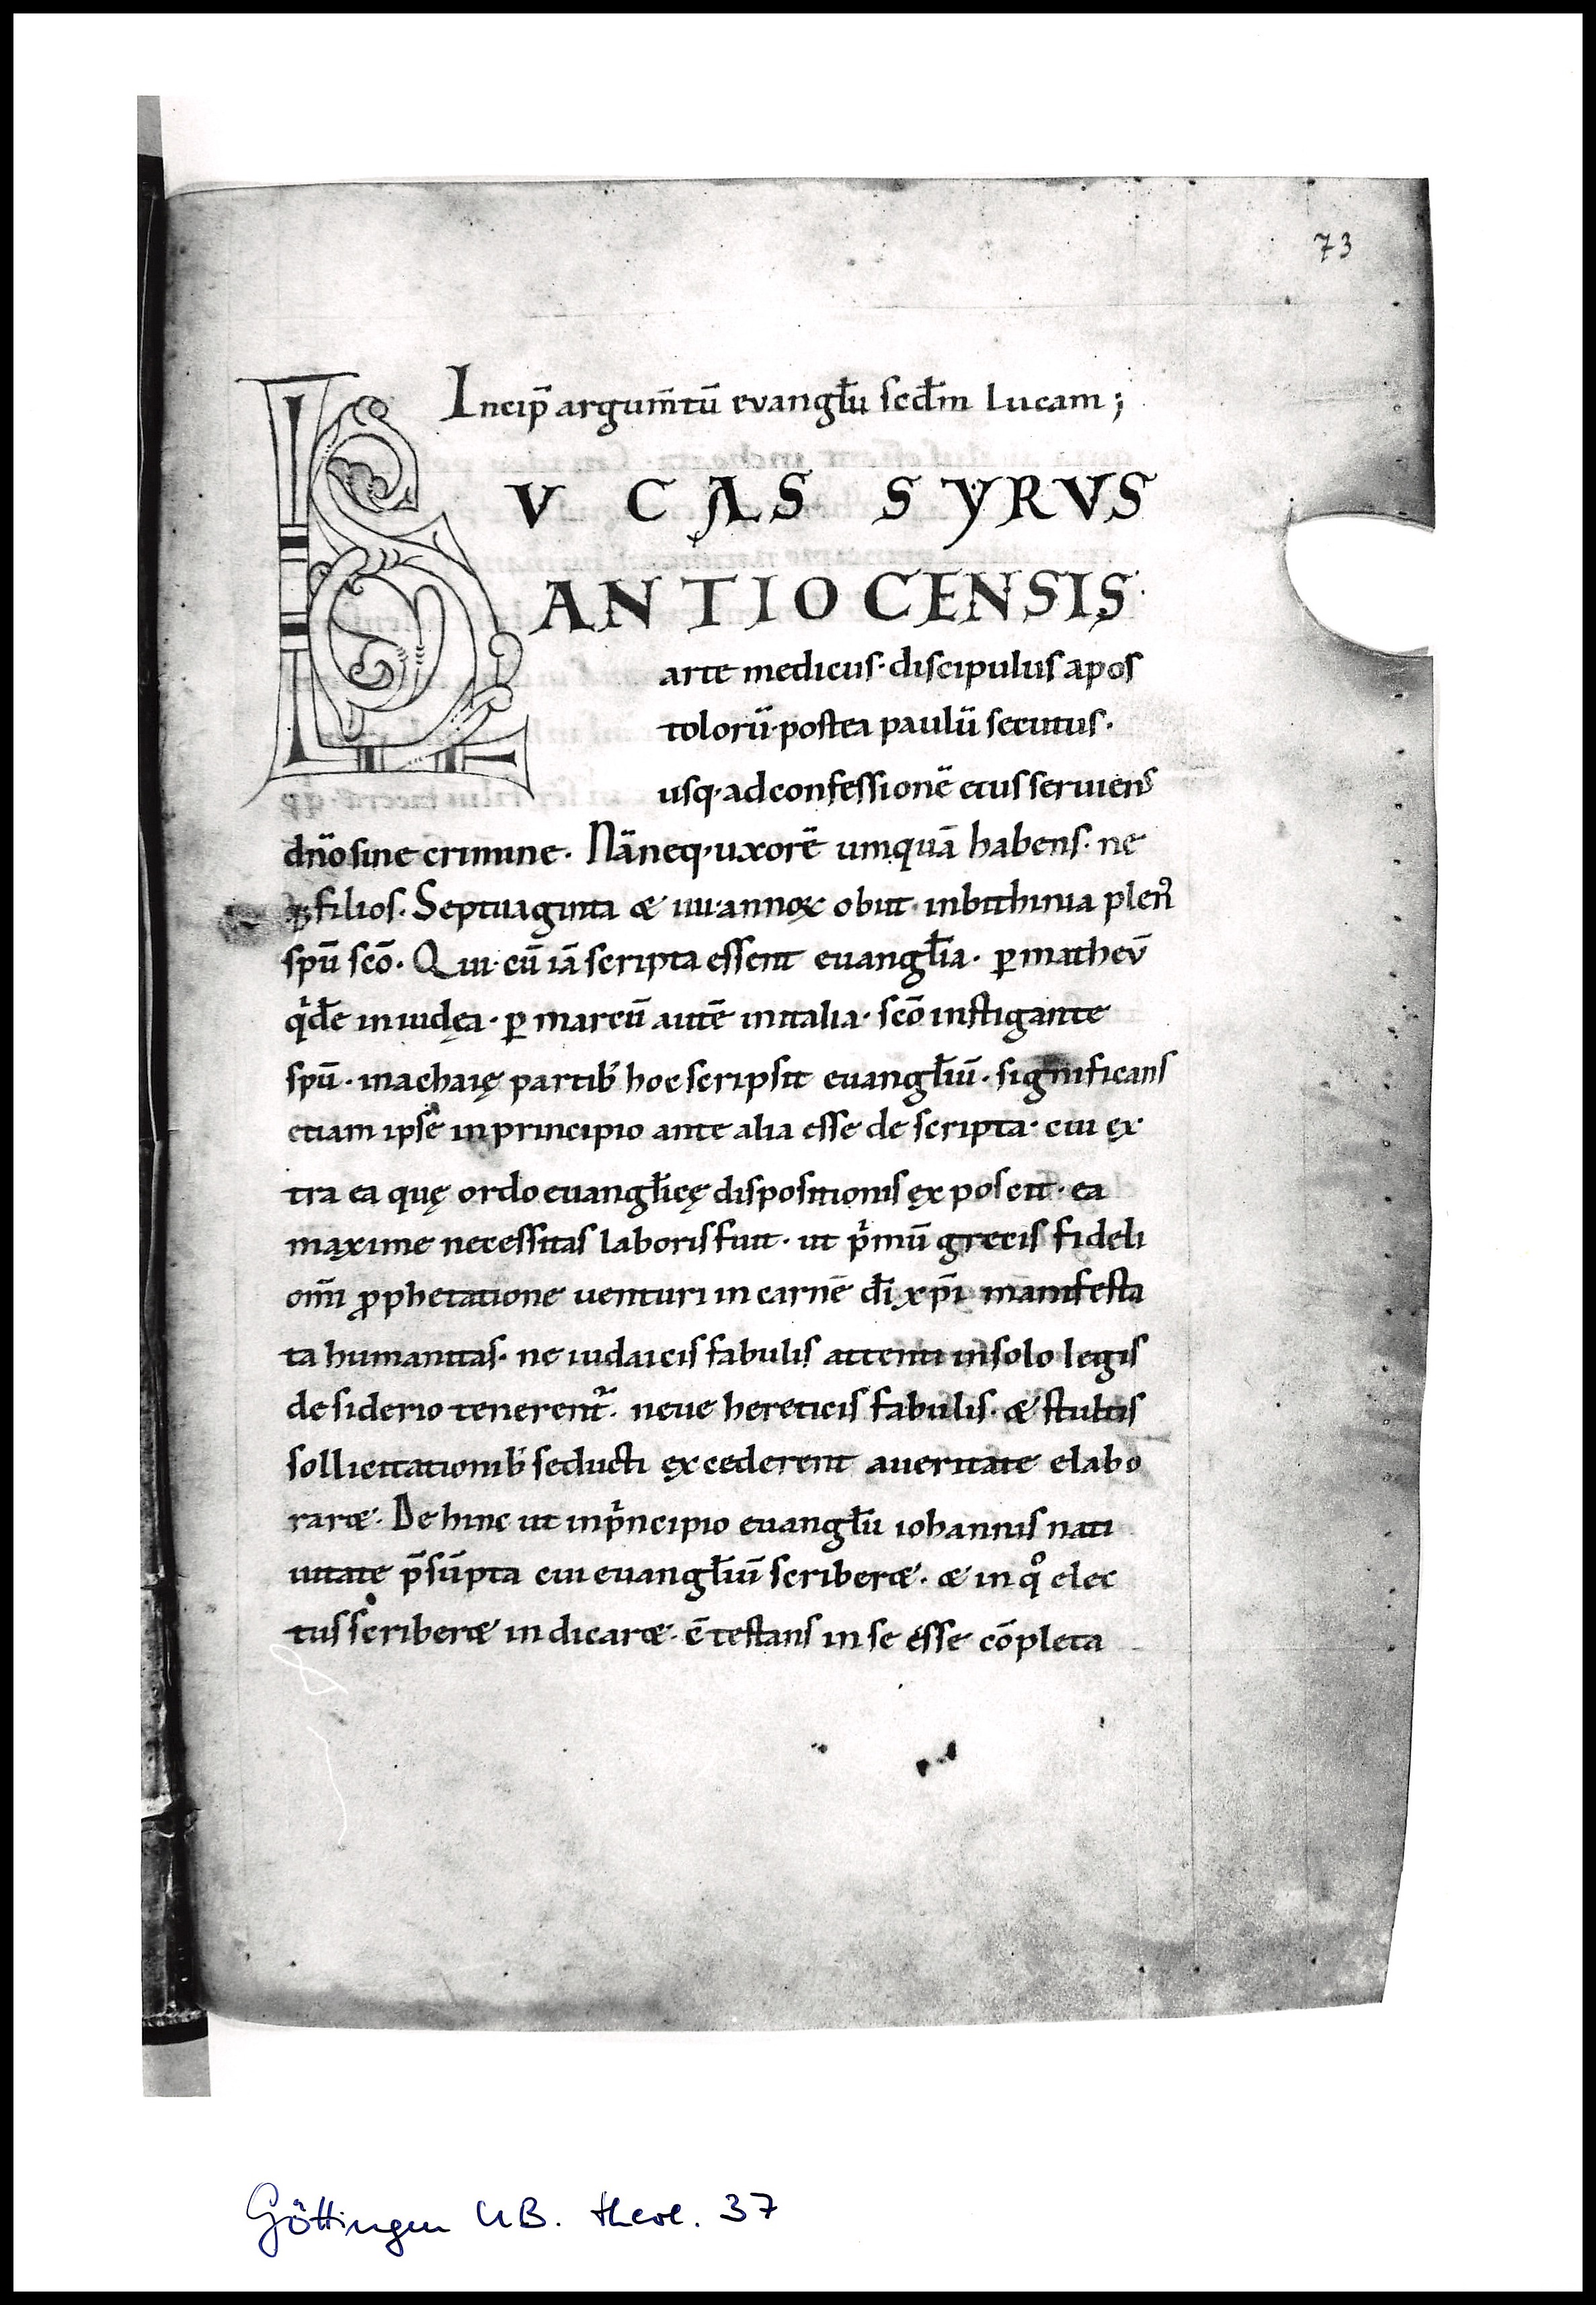 73
Incip̄ argum̄tū evangl̄ii scd̄m lucam;
LVCAS SYRVS
ANTIOCENSIS
arte medicus· discipulus apos
tolorū· postea paulū secutus·
usq· ad confessionē eius seruiens
dn̄o sine crimine· Nā neq· uxorē umquā habens· ne
q; filios· Septuaginta & iiii· annoꝝ obiit· in bithinia plen᷒
sp̄ū sc̄o· Qui· cū iā scripta essent euangl̄ia· ꝑ matheū
q̍dē in iudęa· ꝑ marcū autē in italia· sc̄o instigante
sp̄ū· in achaię partib᷒ hoc scripsit euangl̄iū· significans
etiam ipse in principio ante alia esse descripta· cui ex
tra ea quę ordo euangl̄icę dispositionis ęxposcit· ea
maxime necessitas laboris fuit· ut p̍mū grecis fideli
om̄i ꝓphetatione uenturi in carnē dī xp̄i manifesta
ta humanitas· ne iudaicis fabulis attenti in solo legis
desiderio tenerent᷑· neue hereticis fabulis· & stultis
sollicitationib᷒ seducti ęxcederent a ueritate elabo
rar&· De hinc ut in p̍ncipio euangl̄ii iohannis nati
uitate p̄sūpta cui euangl̄iū scriber&· & in qͦ elec
tus scriber& indicar&· c̄testans in se esse cōpleta
Göttingen UB. theol. 37